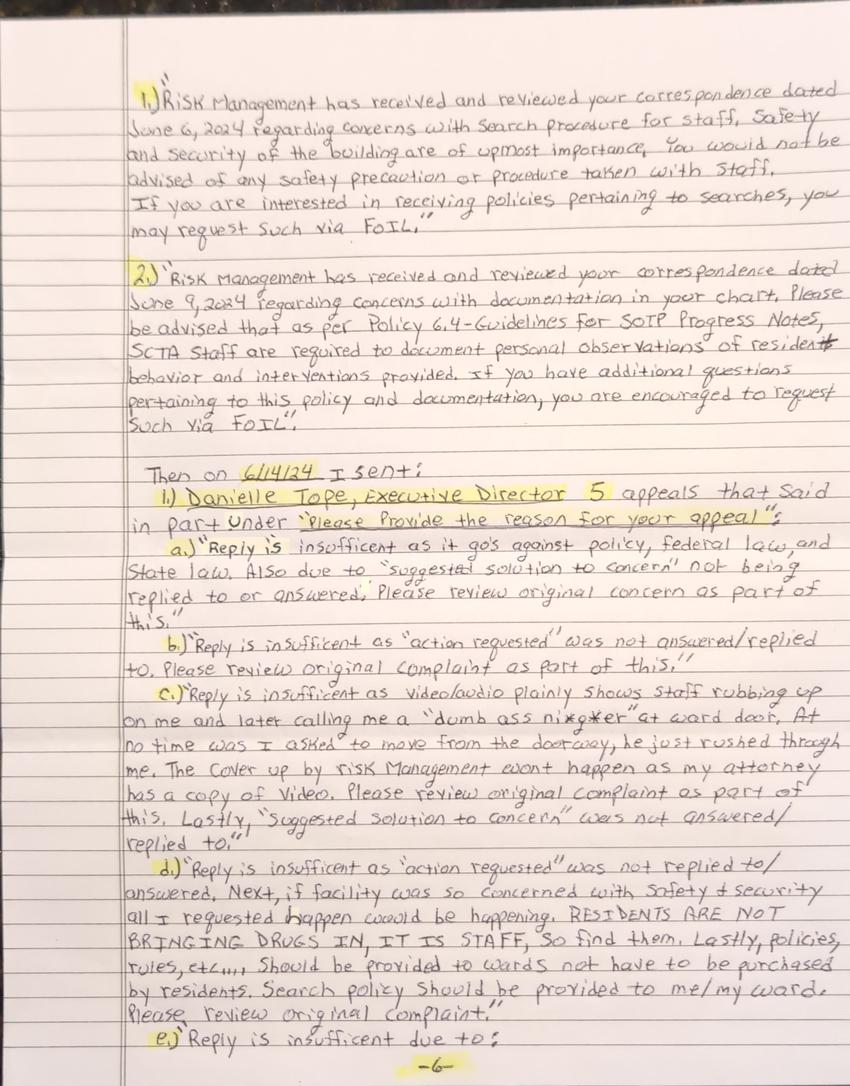 1.) "Risk Management has received and reviewed your correspondence dated
June 6, 2024 regarding concerns with search procedure for staff. Safety
and security of the building are of upmost importance. You would not be
advised of any safety precaution or procedure taken with staff.
If you are interested in receiving policies pertaining to searches, you
may request such via FOIL."
2.) "Risk Management has received and reviewed your correspondence dated
June 9, 2024 regarding concerns with documentation in your chart. Please
be advised that as per Policy 6.4-Guidelines for SOTP Progress Notes,
SCTA Staff are required to document personal observations of resident
behavior and interventions provided. If you have additional questions
pertaining to this policy and documentation, you are encouraged to request
such via FOIL".
Then on 6/14/24 I sent:
1.) Danielle Tope, Executive Director 5 appeals that said
in part under "Please Provide the reason for your appeal":
a.) "Reply is insufficent as it go's against policy, federal law, and
State law. Also due to "suggested solution to concern" not being
replied to or answered. Please review original concern as part of
this."
b.) "Reply is insufficent as "action requested" was not answered/replied
to. Please review original complaint as part of this."
c.) "Reply is insufficent as video/audio plainly shows staff rubbing up
on me and later calling me a "dumb ass nixg*er" at ward door. At
no time was I asked to move from the doorway, he just rushed through
me. The cover up by risk Management wont happen as my attorney
has a copy of video. Please review original complaint as part of
this. Lastly, "suggested solution to concern" was not answered/
replied to."
d.) "Reply is insufficent as "action requested" was not replied to/
answered. Next, if facility was so concerned with safety + security
all I requested happen would be happening. RESIDENTS ARE NOT
BRINGING DRUGS IN, IT IS STAFF, So find them. Lastly, policies,
rules, etc,,,, Should be provided to wards not have to be purchased
by residents. Search policy should be provided to me/my ward.
Please review original complaint."
e.) "Reply is insufficient due to:
-6-